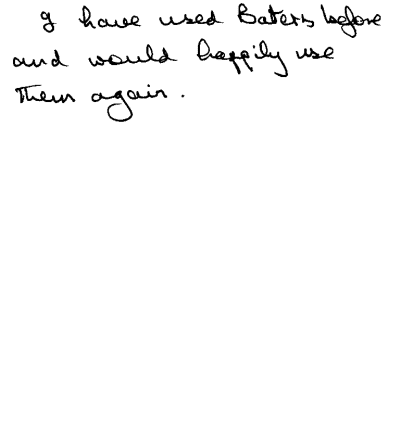 I have used Baters before
and would happily use
them again.